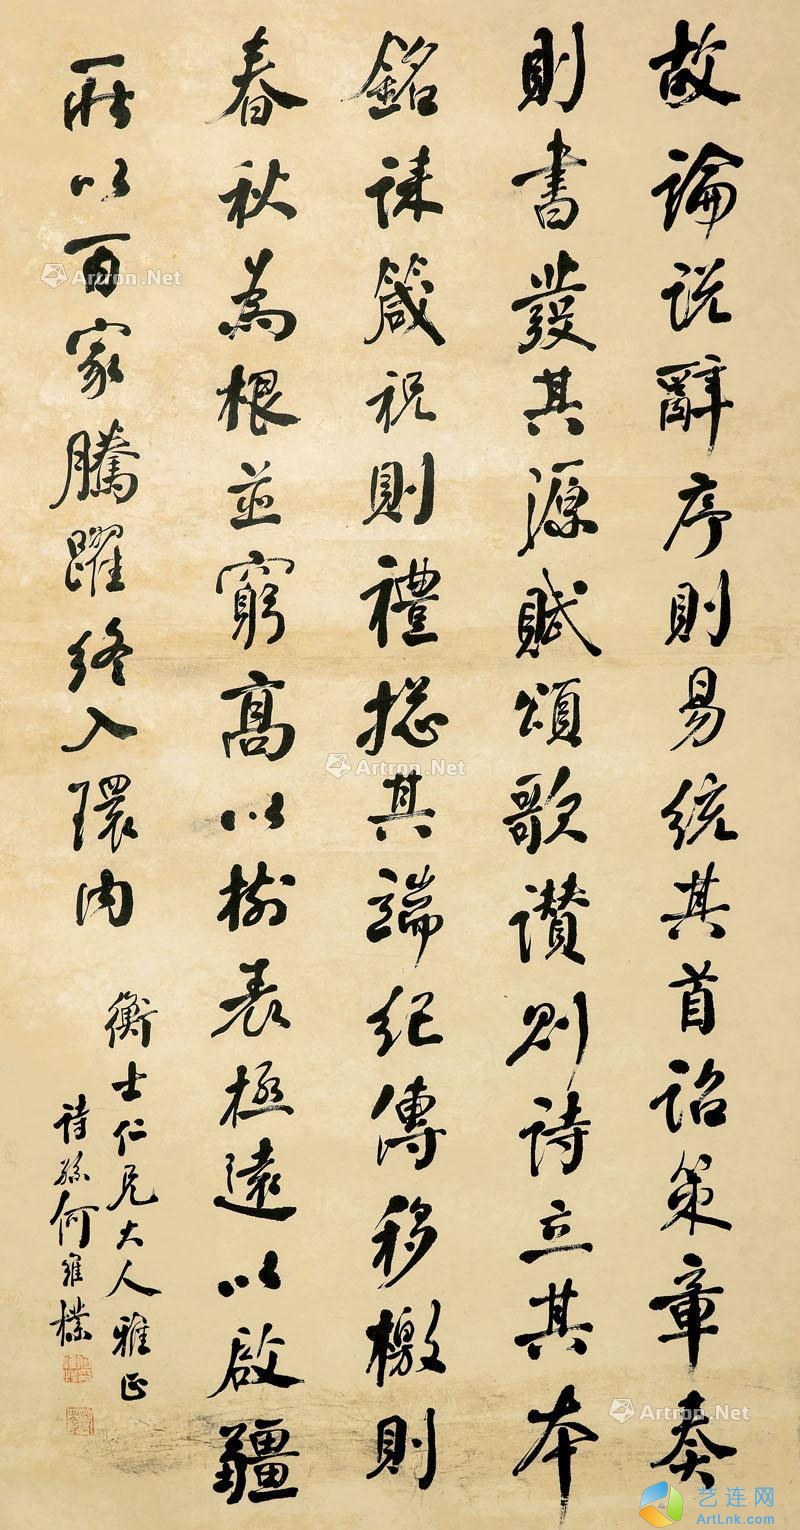 故論說辭序則易統其首詔策章奏
則書發其源賦頌歌讚則詩立其本
銘誄箴祝則禮摠其端紀傳移檄則
春秋為根並窮高以樹表極遠以啟疆
所以百家騰躍終入環內
衡士仁兄大人雅正
詩孫何維樸
Artron.Net
Artron.Net
Artron.Net
Artron.Net
艺连网
ArtLnk.com